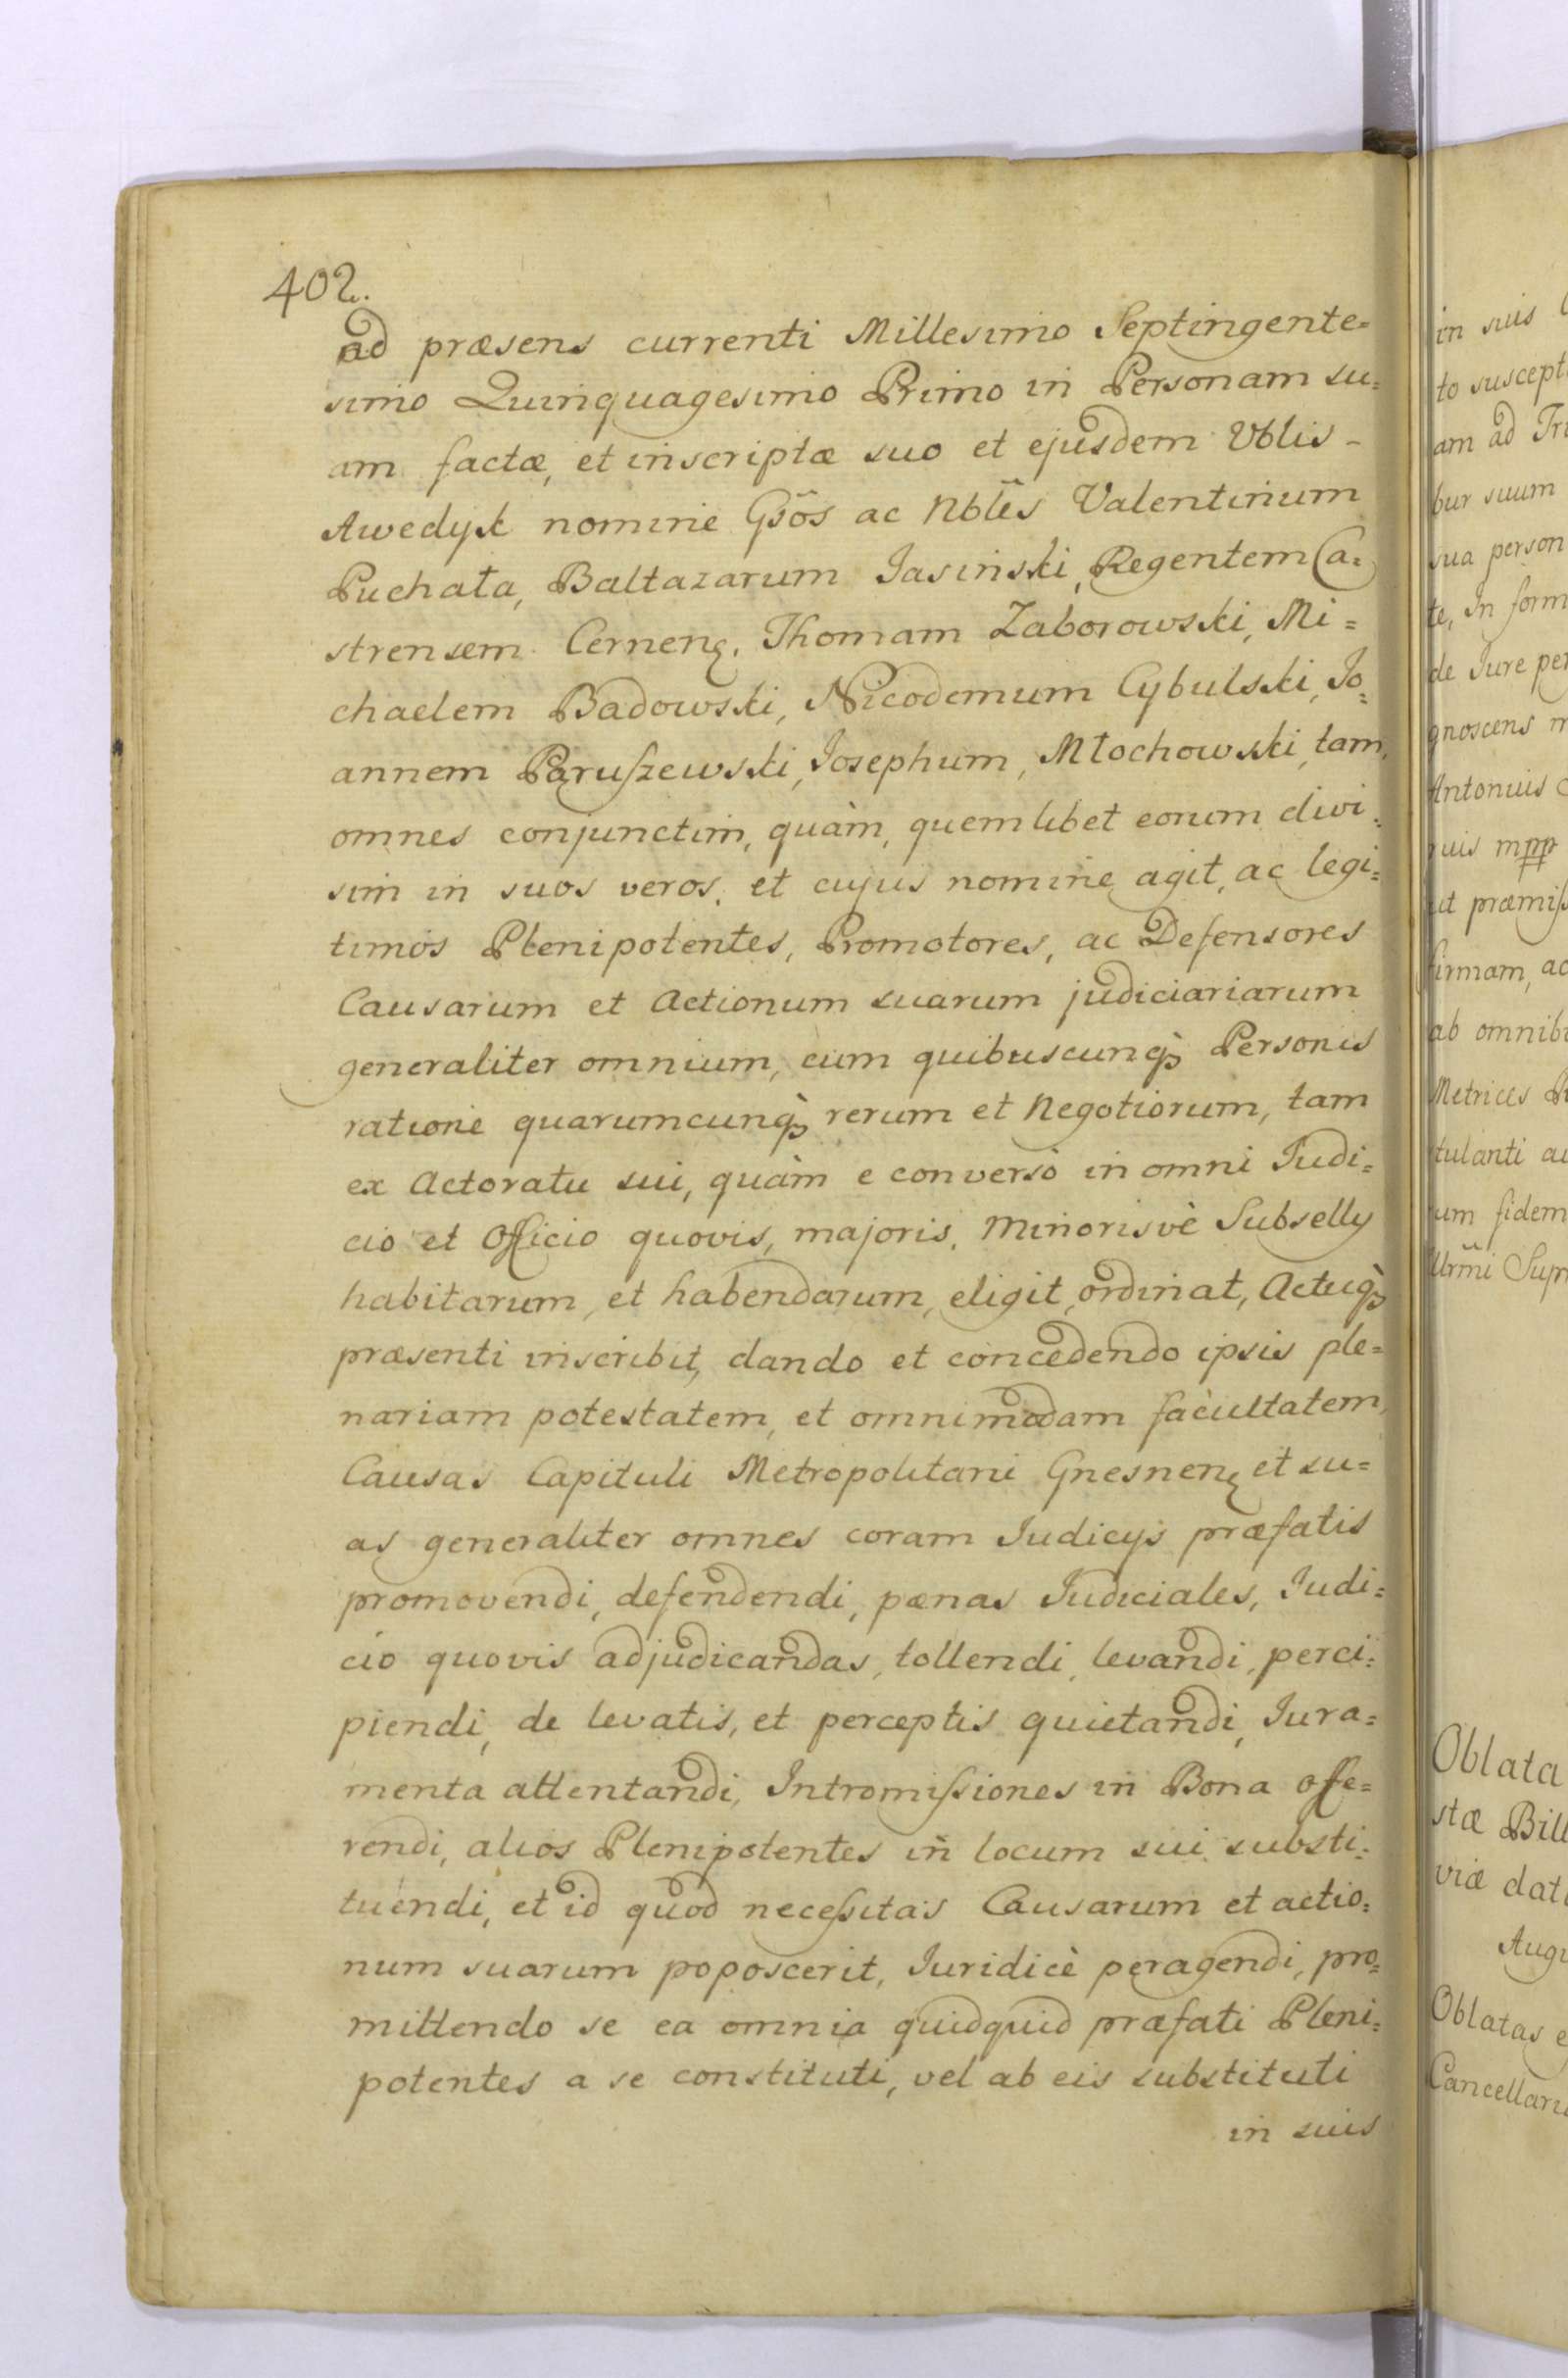 402.
ad præsens currenti Millesimo Septingente=
simo Quinquagesimo Primo in Personam su=
am factæ, et inscriptæ suo et ejusdem Vblis -
Awedyk nomine Gsõs ac Nblẽs Valentinum
Puchała, Baltazarum Jasiński, Regentem Ca=
strensem Cernenę. Thomam Zaborowski, Mi=
chaelem Badowski, Nicodemum Cybulski, Jo=
annem Paruſzewski, Josephum, Młochowski, tam,
omnes conjunctim, quàm, quemlibet eorum divi=
sim in suos veros, et cujus nomine agit, ac legi=
timos Plenipotentes, Promotores, ac Defensores
Causarum et Actionum suarum judiciariarum
generaliter omnium, cum quibuscunq̀ Personis
ratione quarumcunq̀ rerum et Negotiorum, tam
ex Actoratu sui, quàm e converso in omni Judi=
cio et Officio quovis, majoris, Minorisvè Subselly
habitarum, et habendarum, eligit, ordinat, Actuq̀
præsenti inscribit, dando et concedendo ipsis ple=
nariam potestatem, et omnimodam facultatem,
Causas Capituli Metropolitani Gnesnenę et su=
as generaliter omnes coram Judicijs præfatis
promovendi, defendendi, pænas Judiciales, Judi=
cio quovis adjudicandas, tollendi, levandi, perci=
piendi, de levatis, et perceptis quietandi, Jura=
menta attentandi, Intromiſsiones in Bona offe=
rendi, alios Plenipotentes in locum sui substi=
tuendi, et id quod neceſsitas Causarum et actio=
num suarum poposcerit, Juridicè peragendi, pro=
mittendo se ea omnia quidquid præfati Pleni=
potentes a se constituti, vel ab eis substituti
in suis
in suis
to suscept
am ad Tri
bur suum
sua person
te, In form
de Jure per
gnoscens m
Antonius
uis mpp
ut præmiſs
firmam, ac
ab omnibu
Metrices
tulanti au
um fidem
Sup
Oblata
stæ Bill
viæ dat
Augu
Oblatas e
Cancellari